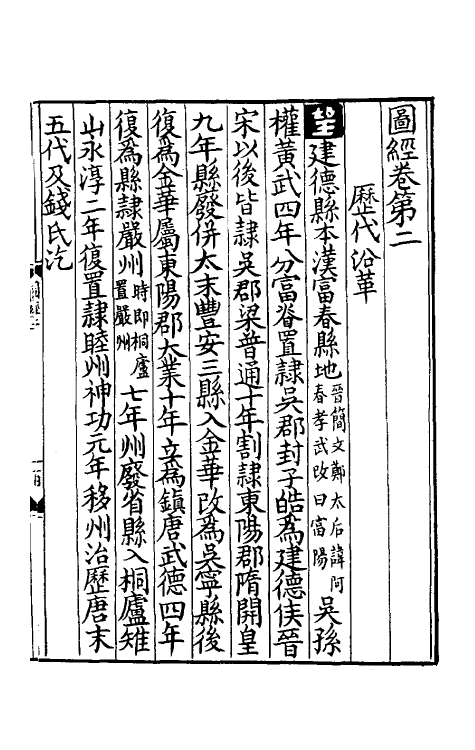 圖經卷第二
歷代沿革
望建德縣本漢富春縣地晉簡文鄭太后諱阿春孝武改曰富陽吳孫
權黃武四年分富春置隸吳郡封子皓為建德侯晉
宋以後皆隸吳郡梁普通十年割隸東陽郡隋開皇
九年縣廢併太末豐安三縣入金華改為吳寧縣後
復為金華屬東陽郡大業十年立為鎮唐武德四年
復為縣隸嚴州時即桐廬置嚴州七年州廢省縣入桐廬雉
山永淳二年復置隸睦州神功元年移州治歷唐末
五代及錢氏訖